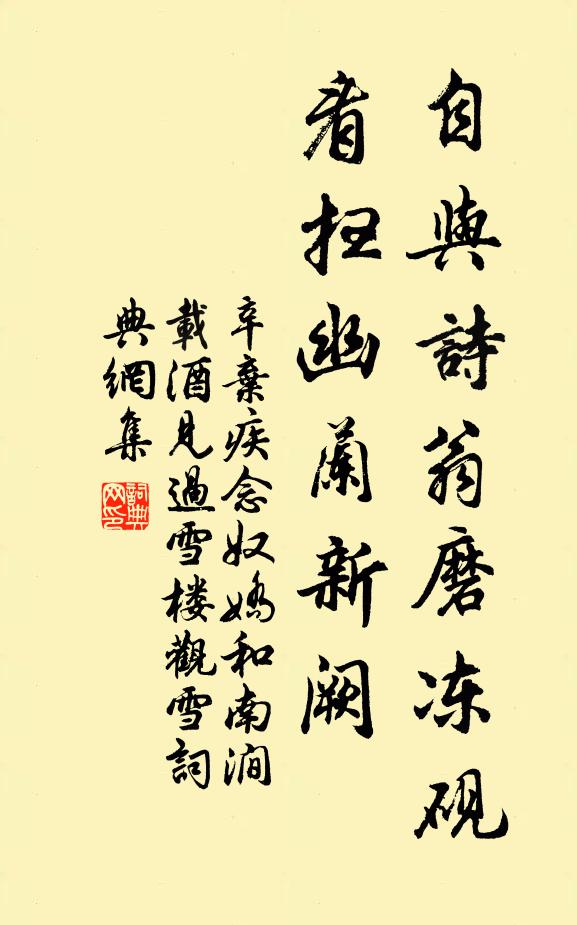 自與詩翁磨凍硯
看扫幽蘭新阙
辛棄疾念奴嬌和南澗
載酒見過雪楼觀雪詞
典網集
詞典
网印